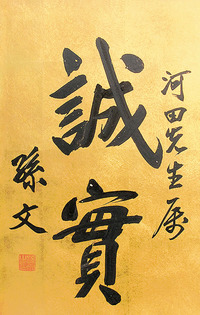 河田先生属
誠實
孫文